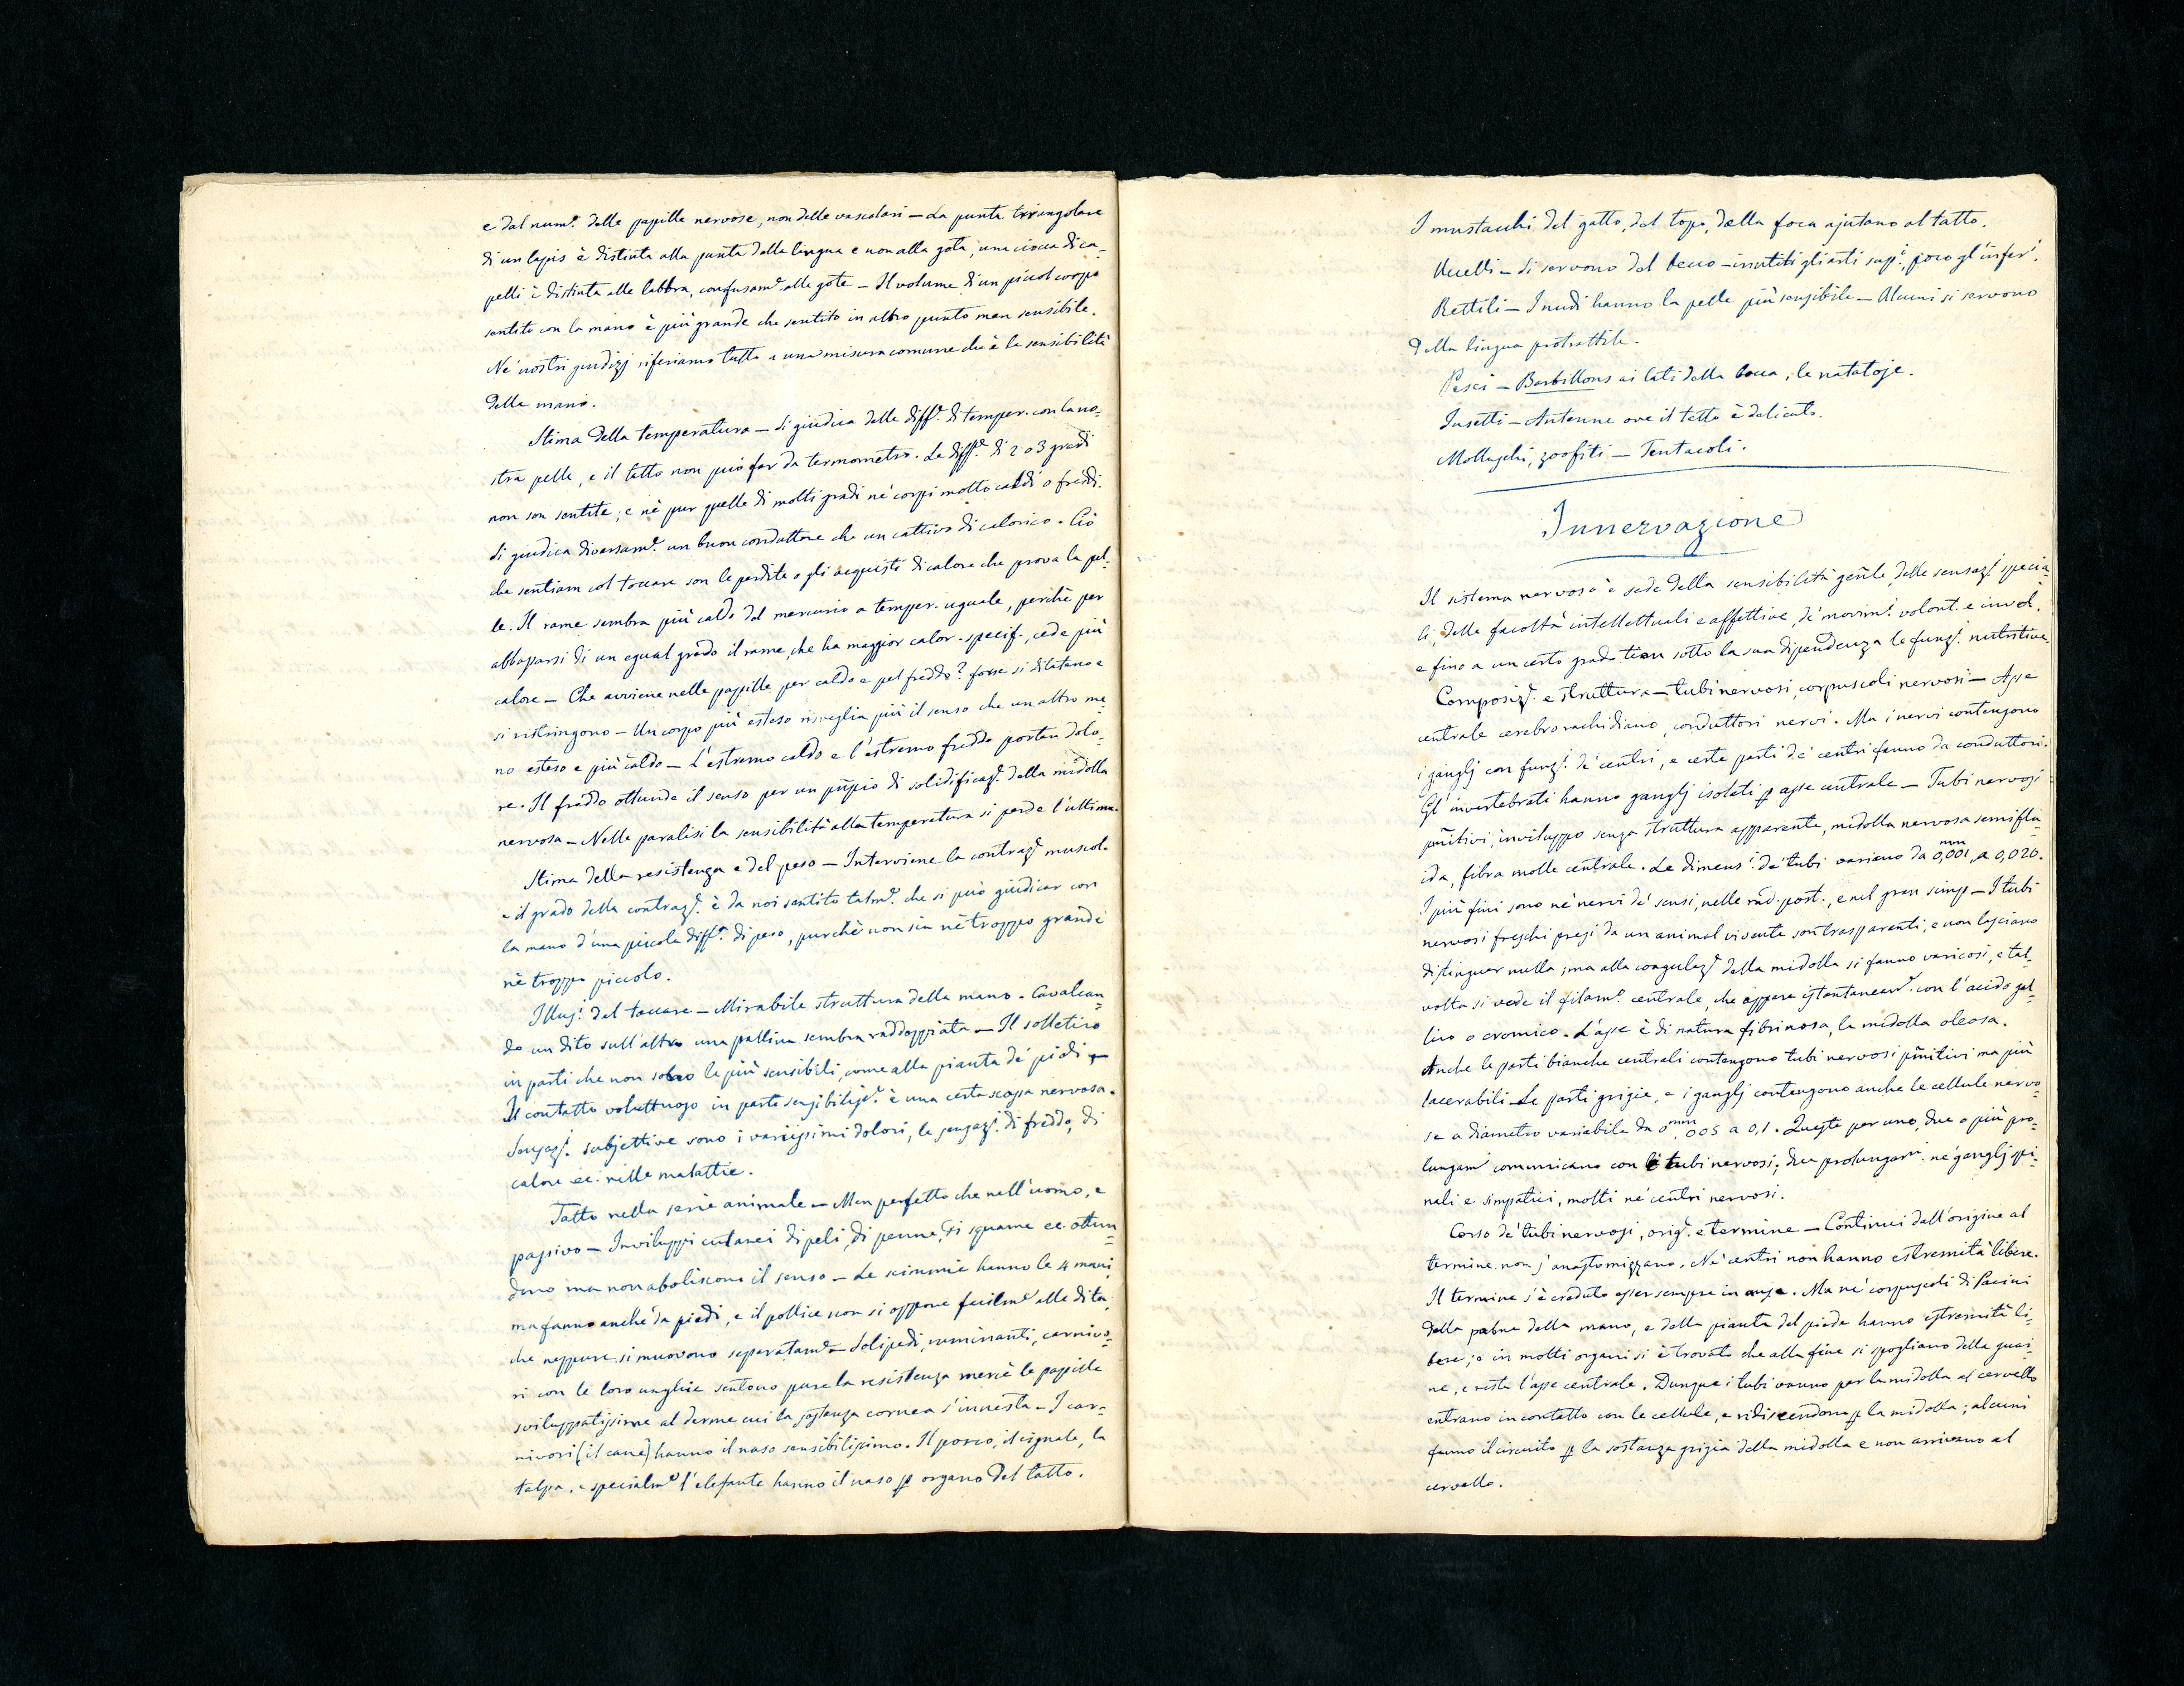 e dal num.º delle papille nervose, non delle vascolari — La punta triangolare
di un lapis è distinta alla punta della lingua e non alla gota; una ciocca di ca-
pelli è distinta alle labbra, confusam.e alle gote — Il volume di un piccol corpo
sentito con la mano è più grande che sentito in altro punto men sensibile.
Ne' nostri giudizj riferiamo tutto a una misura comune che è la sensibilità
della mano.
Stima della temperatura — Si giudica delle diff.e di temper. con la no-
stra pelle, e il tatto non può far da termometro. Le diff.e di 2 o 3 gradi
non son sentite; e nè pur quelle di molti gradi ne' corpi molto caldi o freddi.
Si giudica diversam.e un buon conduttore che un cattivo di calorico. Ciò
che sentiam col toccare son le perdite o gli acquisti di calore che prova la pel-
le. Il rame sembra più caldo del mercurio a temper. uguale, perchè per
abbassarsi di un egual grado il rame, che ha maggior calor. specif., cede più
calore — Che avviene nelle papille per caldo e pel freddo? forse si dilatano e
si ristringono — Un corpo più esteso risveglia più il senso che un altro me-
no esteso e più caldo — L'estremo caldo e l'estremo freddo portan dolo-
re. Il freddo ottunde il senso per un pñpio di solidificaz.e della midolla
nervosa — Nelle paralisi la sensibilità alla temperatura si perde l'ultima.
Stima della resistenza e del peso — Interviene la contraz.e muscol.
e il grado della contraz.e è da noi sentito talm.e che si può giudicar con
la mano d'una piccola diff.a di peso, purchè non sia nè troppo grande
nè troppo piccolo.
Illus.i del toccare — Mirabile struttura della mano. Cavalcan-
do un dito sull'altro una pallina sembra raddoppiata — Il solletico
in parti che non sono le più sensibili, come alla pianta de' piedi —
Il contatto voluttuoso in parti sensibiliss.e è una certa scossa nervosa.
Sensaz.i subjettive sono i varissimi dolori, le sensaz.i di freddo, di
calore ec. nelle malattie.
Tatto nella serie animale — Men perfetto che nell'uomo, e
passivo — Inviluppi cutanei di peli, di penne, di squame ec. ottun-
dono ma non aboliscono il senso — Le scimmie hanno le 4 mani,
ma fanno anche da piedi, e il pollice non si oppone facilm.e alle dita,
che neppure si muovono separatam.e — Solipedi, ruminanti, carnivo-
ri con le loro unghie sentono pure la resistenza mercè le papille
sviluppatissime al derme cui la sostanza cornea s'innesta — I car-
nivori (il cane) hanno il naso sensibilissimo. Il porco, il cignale, la
talpa, e specialm.e l'elefante hanno il naso p organo del tatto.
I mustacchi del gatto, del topo, della foca ajutano al tatto.
Uccelli — Si servono del becco — inutili gli arti sup.i, poco gl'infer.i
Rettili — I nudi hanno la pelle più sensibile — Alcuni si servono
della lingua protrattile.
Pesci — Barbillons ai lati della bocca, le natatoje.
Insetti — Antenne ove il tatto è delicato.
Molluschi, zoofiti — Tentacoli.
Innervazione
Il sistema nervoso è sede della sensibilità geñle, delle sensaz.i specia-
li, delle facoltà intellettuali e affettive, de' movim.i volont. e invol.
e fino a un certo grado tien sotto la sua dipendenza le funz.i nutritive.
Composiz.e e struttura — tubi nervosi, corpuscoli nervosi — Asse
centrale cerebrorachidiano, conduttori nervi. Ma i nervi contengono
i ganglj con funz.i de' centri, e certe parti de' centri fanno da conduttori.
Gl'invertebrati hanno ganglj isolati p asse centrale — Tubi nervosi
pñitivi, inviluppo senza struttura apparente, midolla nervosa semiflu-
ida, fibra molle centrale. Le dimens.i de' tubi variano da 0,mm001 a 0,020.
I più fini sono ne' nervi de' sensi, nelle rad. post., e nel gran simp — I tubi
nervosi freschi presi da un animal vivente son trasparenti, e non lasciano
distinguer nulla; ma alla coagulaz.e della midolla si fanno varicosi, e tal-
volta si vede il filam.º centrale, che appare istantaneam.e con l'acido gal-
lico o cromico. L'asse è di natura fibrinosa, la midolla oleosa.
Anche le parti bianche centrali contengono tubi nervosi pñitivi ma più
lacerabili — Le parti grigie, e i ganglj contengono anche le cellule nervo-
se a diametro variabile da 0,mm005 a 0,1. Queste per uno, due o più pro-
lungam.i comunicano con i tubi nervosi; due prolungam.i ne' ganglj spi-
nali e simpatici, molti ne' centri nervosi.
Corso de' tubi nervosi, orig.e e termine — Continui dall'origine al
termine non s'anastomizzano. Ne' centri non hanno estremità libere.
Il termine s'è creduto esser sempre in ansa. Ma ne' corpuscoli di Pacini
della palma della mano, e della pianta del piede hanno estremità li-
bere; e in molti organi si è trovato che alla fine si spogliano della guai-
na, e resta l'asse centrale. Dunque i tubi vanno per la midolla al cervello
entrano in contatto con le cellule, e ridiscendono p la midolla; alcuni
fanno il circuito p la sostanza grigia della midolla e non arrivano al
cervello.